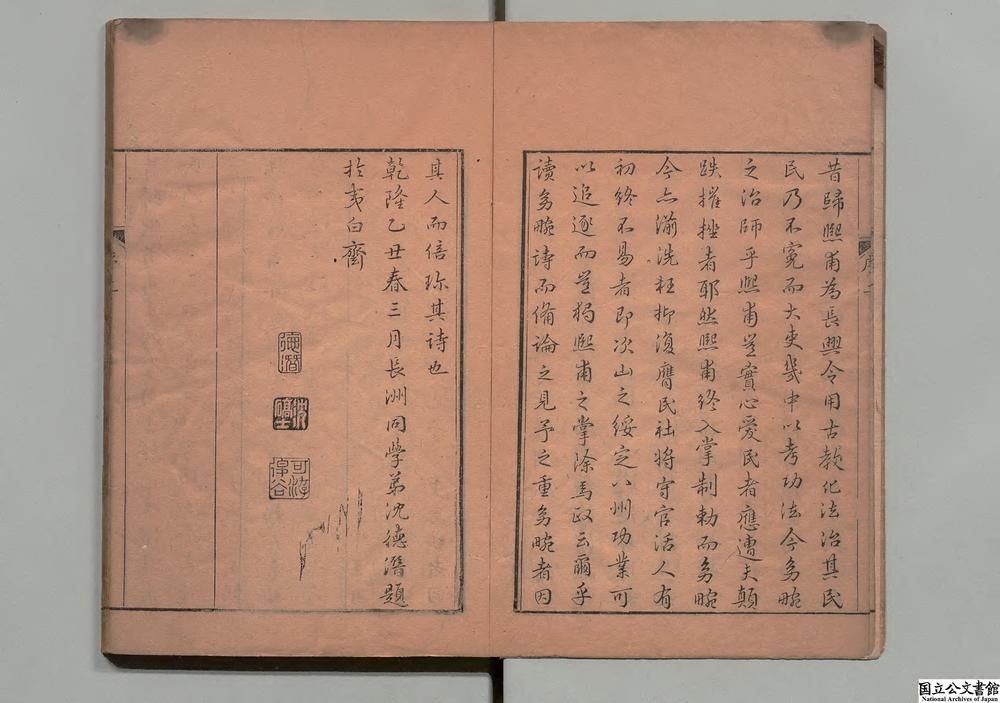 昔歸熙甫為長興令用古教化法治其民
民乃不寃而大吏幾中以考功法今多畹
之治師乎熙甫是實心愛民者應遭夫顛
跌摧挫者耶然熙甫終入掌制勅而多畹
今亦湔洗枉抑復膺民社将守官活人有
初終不易者即次山之綏定八州功業可
以追逐而豈獨熙甫之掌除馬政云爾乎
讀多畹詩而備論之見予之重多畹者因
其人而倍珎其詩也
乾隆乙丑春三月長洲同學弟沈德潛題
於夷白齋
德潛
可淳
国立公文書館
National Archives of Japan